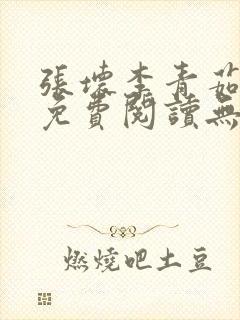 張壞李青茹
免費閱讀無
燃燒吧土豆